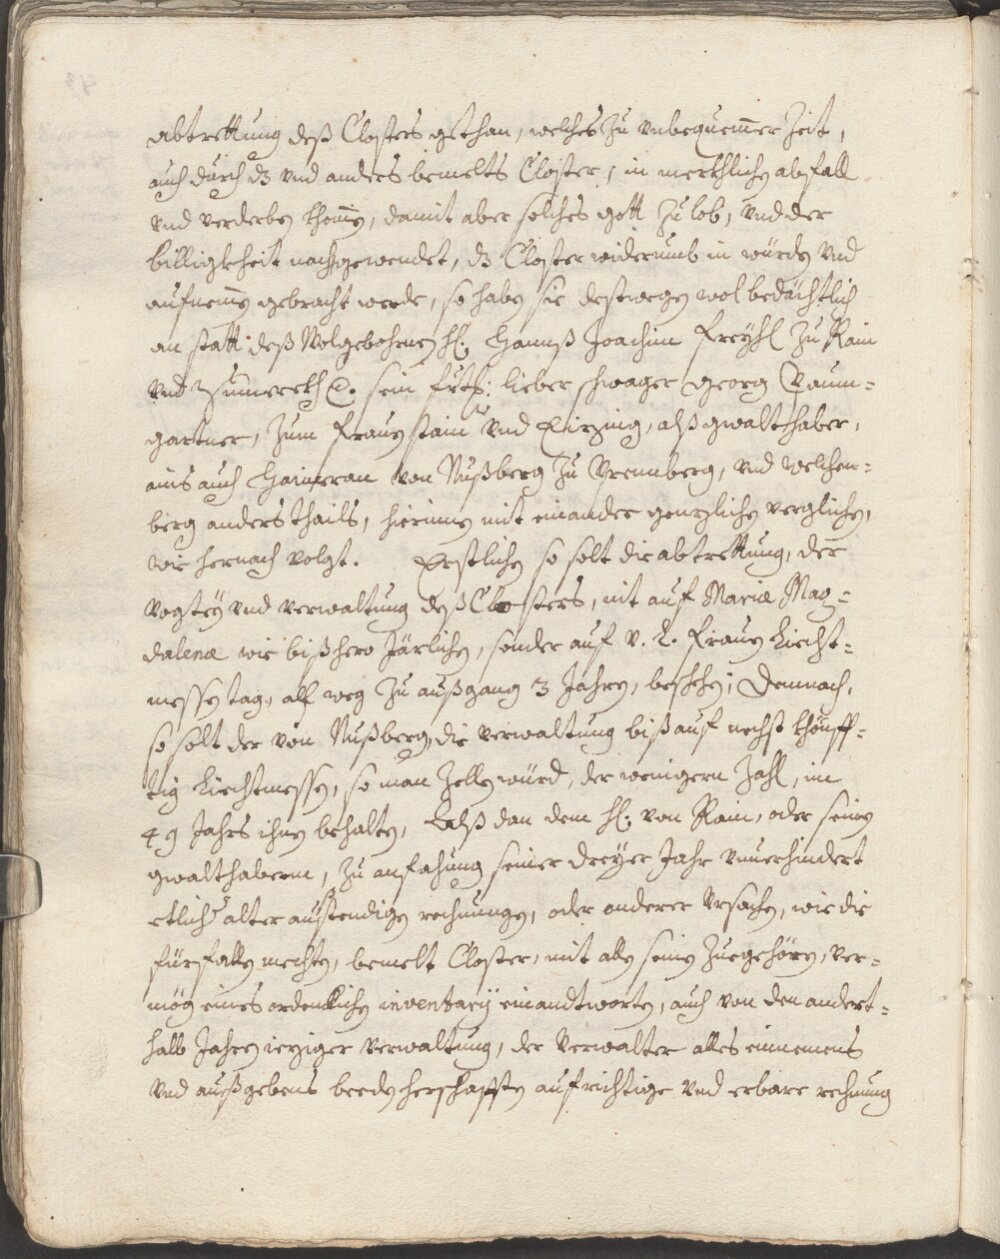 abtrettung deß Closters gethan, welches zu unbequemer Zeit,
auch durch dz vnd anders bemelts Closter, in merkhlichen abfall
vnd verderben khomen, damit aber solches gott zu lob, vnd der
billigkheit nachgewendet, dz Closter widerumb in würden vnd
aufnemen gebracht werde, so haben sie destwegen wol bedächtlich
an statt deß Wolgebohrnen H: Hannß Joachim Freyh: zu Rain
vnd Summereckh &. sein lieber schwager Georg Paum=
gartner, zum Frauenstain vnd Eizing, alß gwalthaber,
ains auch Haimeran von Nußberg zu Prennberg, vnd
berg anders thails, hierinnen mit einander genzlichen verglichen,
wie hernach volgt. Erstlichen so solt die abtrettung, der
vogtey vnd verwaltung deß Closters, nit auf Mariæ Mag=
dalenæ wie bißhero Järlichen, sonder auf v. L. Frauen Liecht=
messen tag, all weg zu außgang 3 Jahren, beschehen; Demnach,
so solt der von Nußberg, die verwaltung biß auf nechst khünff=
tig Liechtmessen, so man zellen würd, der wenigern Zahl, im
49 Jahrs ihnen behalten, Alß dan dem H: von Rain, oder seinen
gwalthabern, zu anfahung seiner dreyer Jahr vnuerhindert
etlicher alter außtendigen rechnungen, oder anderer Vrsachen, wie die
fürfallen mechten, bemelt Closter, mit allen seinen Zuegehören, ver=
mög eines ordenlichen inventarij einandtworten, auch von den andert=
halb Jahren ieziger verwaltung, der Verwalter alles einnemens
vnd außgebens beeden herschafften aufrichtige vnd erbare rechnung